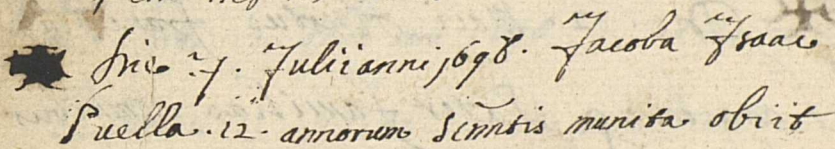 hic 7. Julii anni 1698. Jacoba Isaac
Puella. 12. annorum Scmtis munita obiit